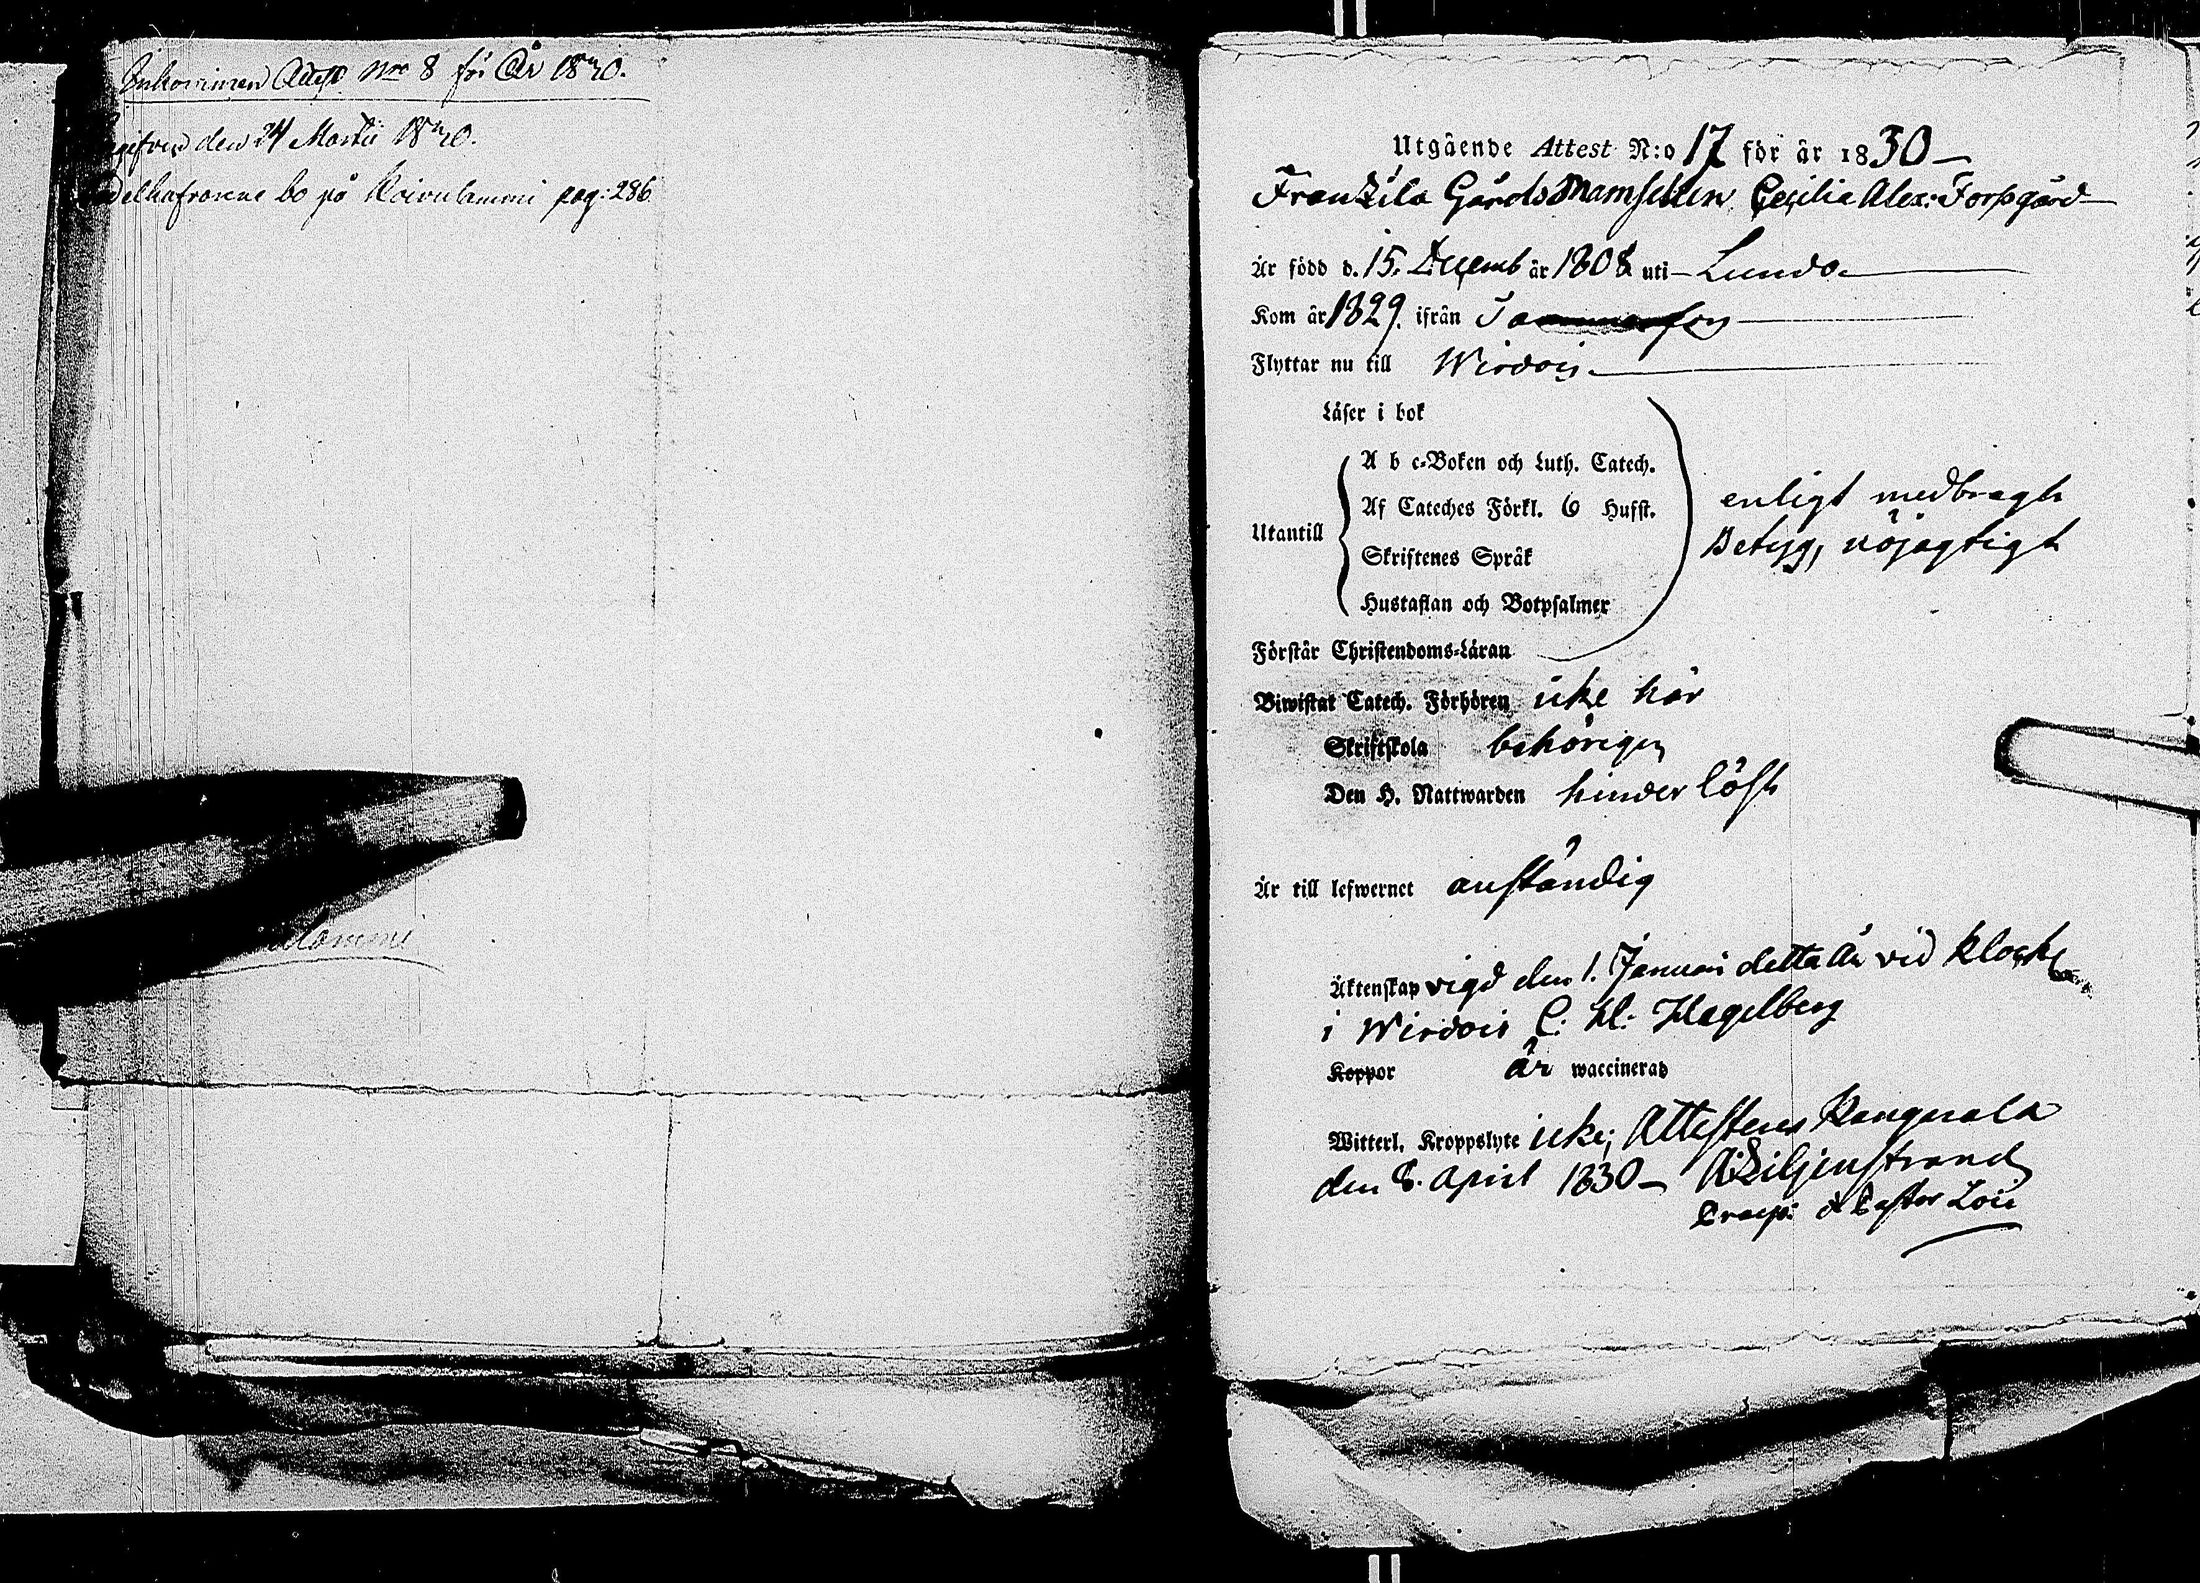 Inkommen Attest Nro 8 för År 1830.
den 24 Martii 1830.
bo på Koivulammi pag: 286.
lammi
Utgående Attest N:o 17 för år 1830
Franzila Gårds Mamsellen Cecilia Alex: Forssgård
Är född d. 15. Decemb år 1808 uti Lundo
Kom år 1829. ifrån
Flyttar nu till Wirdois
Läser i bok
A b c-Boken och Luth. Catech.
Af Cateches Förkl. 6 Hufst.
Utantill
Skriftenes Språk
Hustaflan och Botpsalmer
enligt medbragt
Betyg, nöjagtigt
Förstår Christendoms-Läran
Biwistat Catech. Förhören icke här
Skriftskola behörigen
Den H. Nattwarden hinderlöst
Är till lefwernet anständig
Äktenskap vigd den 1. Januari detta År vid Klock
i Wirdois C. H. Hagelberg
Koppor är waccinerad
Witterl. Kroppslyte icke; Attesteras Kangasala
den 8. April 1830 A: Liljenstrand
Praep: & Pastor Loci